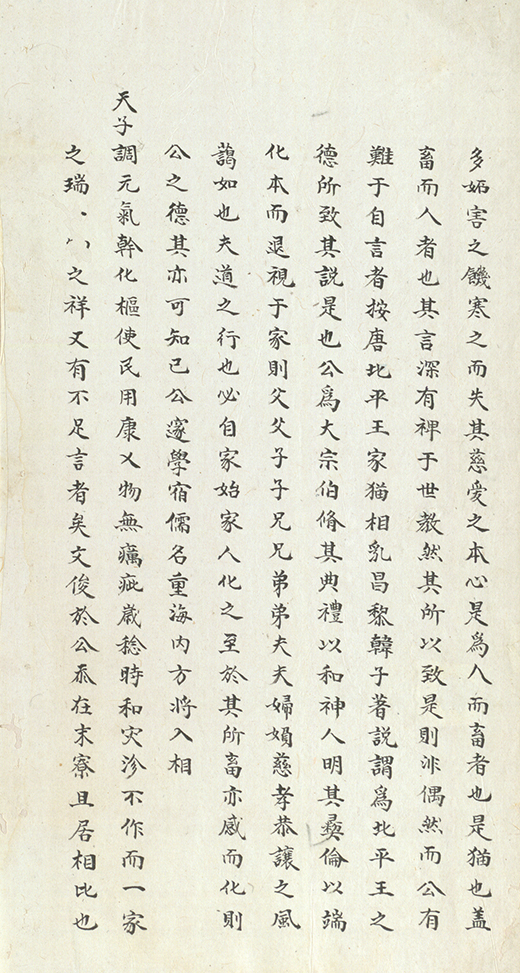 多妬害之饑寒之而失其慈愛之本心是爲人而畜者也是猫也盖
畜而人者也其言深有裨于世教然其所以致是則非偶然而公有
難于自言者按唐北平王家猫相乳昌黎韓子著説謂爲北平王之
德所致其説是也公爲大宗伯脩其典禮以和神人明其彛倫以端
化本而退視于家則父父子子兄兄弟弟夫夫婦媍慈孝恭讓之風
藹如也夫道之行也必自家始家人化之至於其所畜亦感而化則
公之德其亦可知已公邃學宿儒名重海内方將入相
天子調元氣幹化樞使民用康乂物無癘疵歳稔時和灾沴不作而一家
之瑞之祥又有不足言者矣文俊於公忝在末寮且居相比也